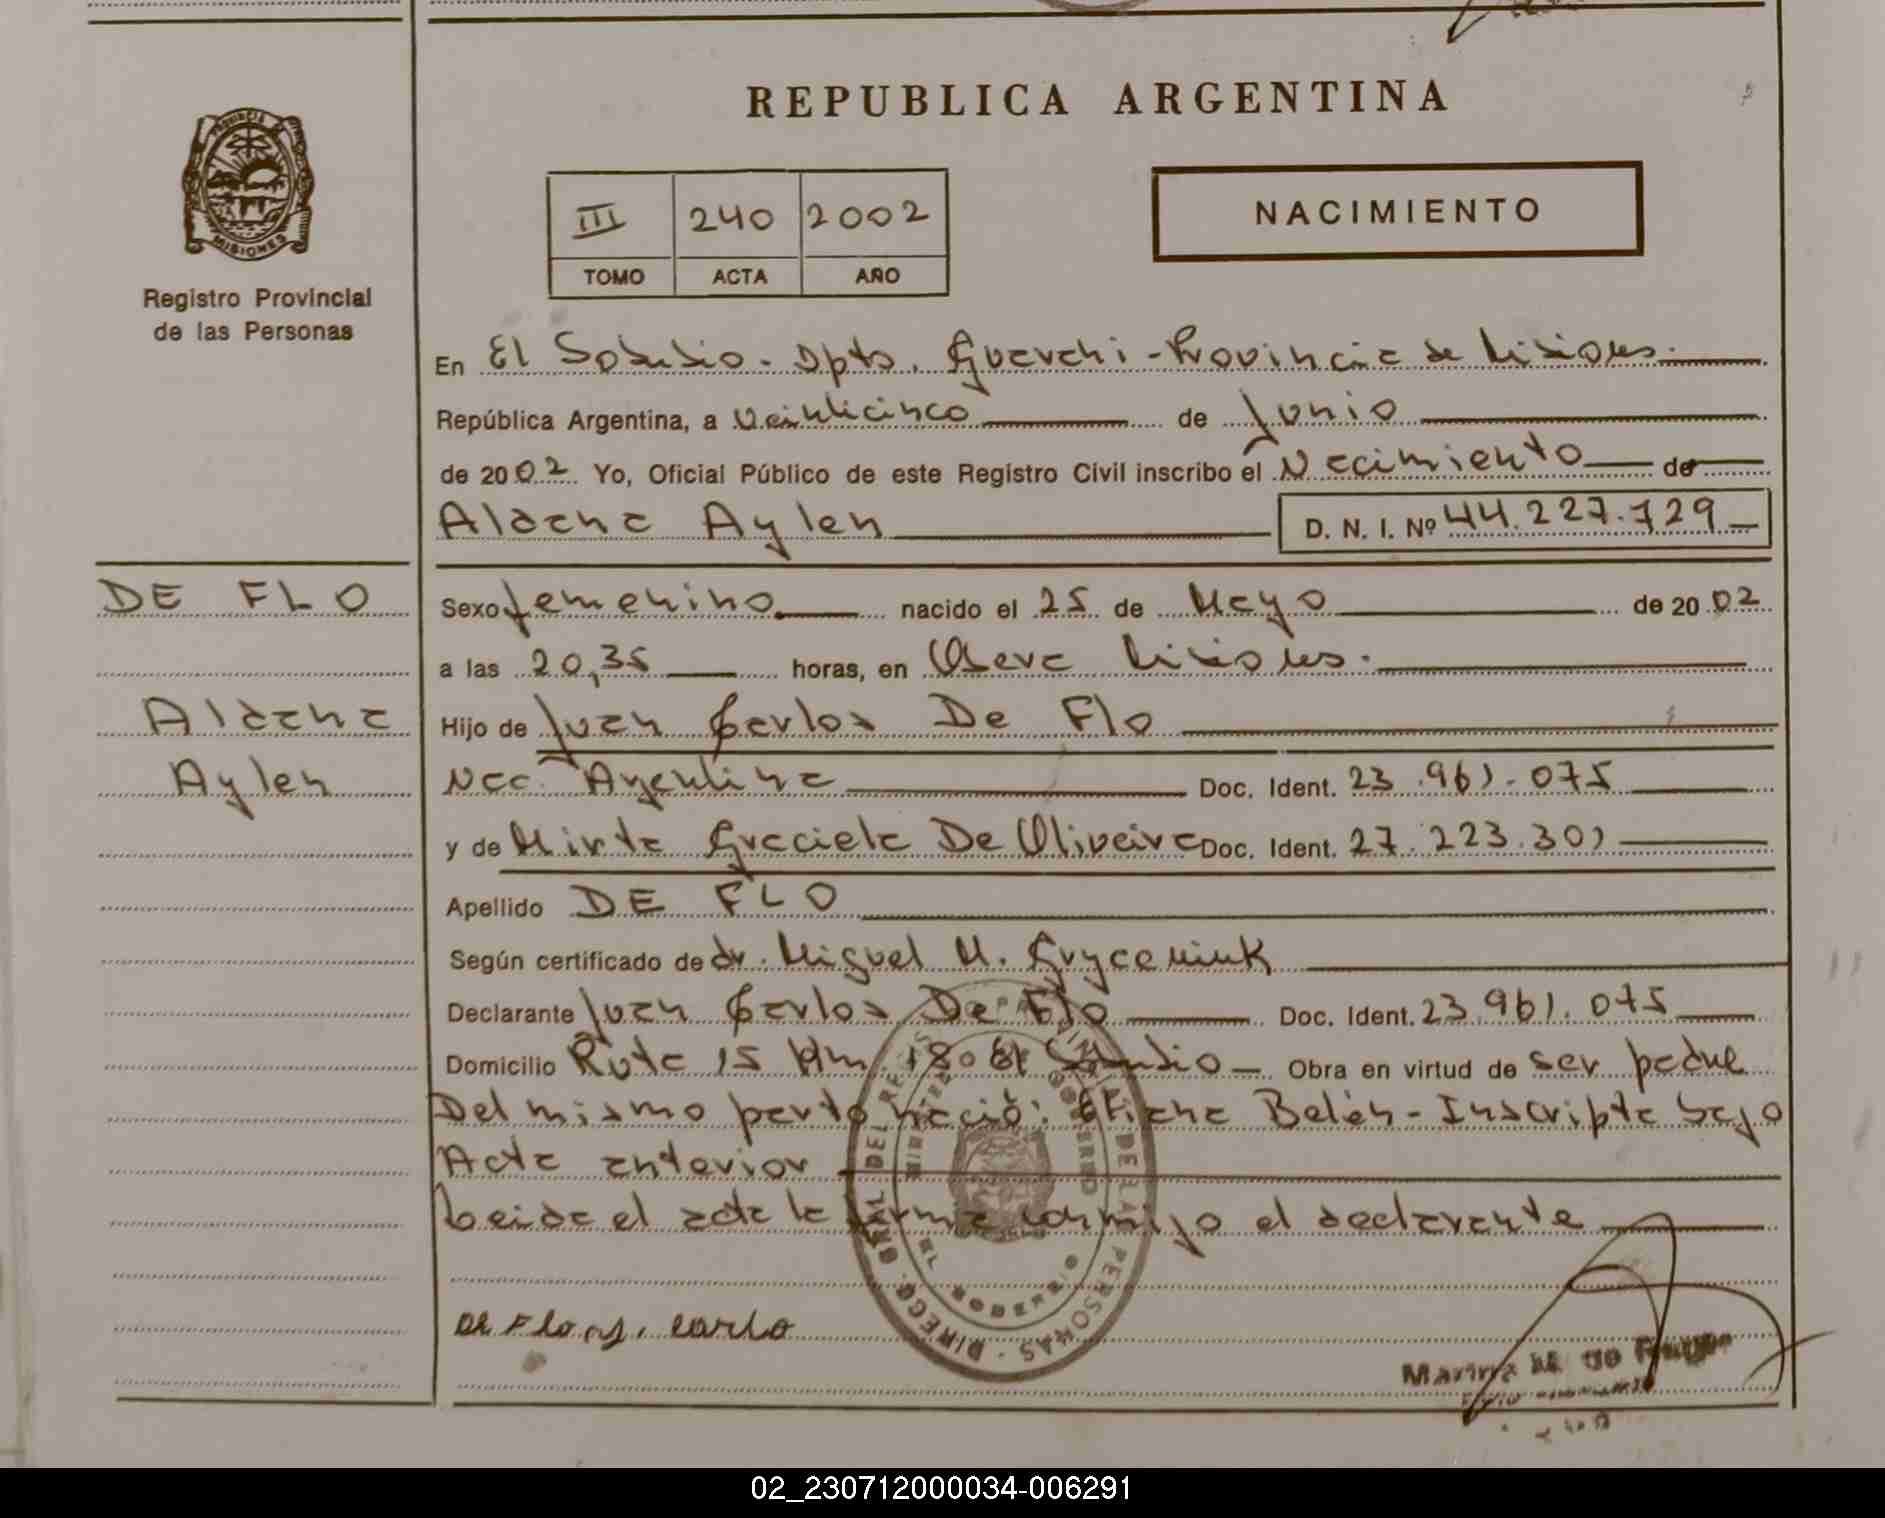 REPUBLICA ARGENTINA
PROVINCIA DE
MISIONES
Registro Provincial
de las Personas
III 240 2002
TOMO ACTA AÑO
NACIMIENTO
En El Soberbio - Dpto. Guaraní - Provincia de Misiones.
República Argentina, a Veinticinco de Junio
de 2002 Yo, Oficial Público de este Registro Civil inscribo el Nacimiento de
Aldana Aylen D. N. I. Nº 44.227.729
DE FLO
Aldana
Aylen
Sexo femenino nacido el 25 de Mayo de 2002
a las 20,35 horas, en Obera Misiones.
Hijo de Juan Carlos De Flo
Nac. Argentina Doc. Ident. 23.961.075
y de Mirta Graciela De Oliveira Doc. Ident. 27.223.301
Apellido DE FLO
Según certificado de dr. Miguel M.
Declarante Juan Carlos De Flo Doc. Ident. 23.961.075
Domicilio Ruta 15 Km. 180 El Soberbio Obra en virtud de ser padre
Del mismo parto nació: Belén - Inscripta bajo
Acta anterior
Leida el acta la firma conmigo el declarante
De Flo Carlo
DIRECC. GRAL DEL DE LAS PERSONAS
02_230712000034-006291